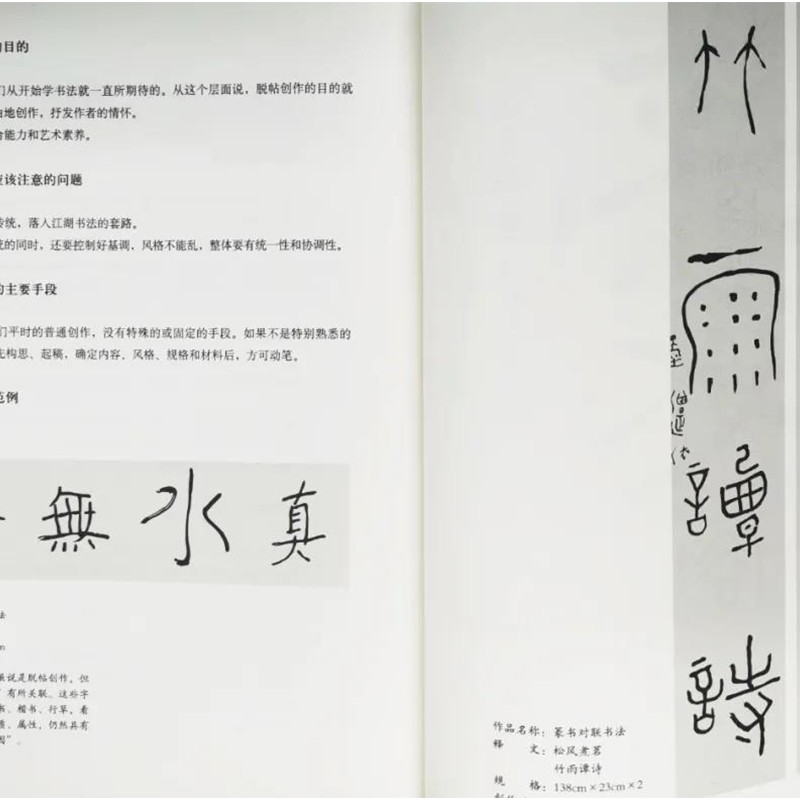 的目的
们从开始学书法就一直所期待的。从这个层面说，脱帖创作的目的就
由地创作，抒发作者的情怀。
合能力和艺术素养。
应该注意的问题
传统，落入江湖书法的套路。
统的同时，还要控制好基调，风格不能乱，整体要有统一性和协调性。
的主要手段
们平时的普通创作，没有特殊的或固定的手段。如果不是特别熟悉的
先构思、起稿，确定内容、风格、规格和材料后，方可动笔。
范例
無水真
法
m
虽说是脱帖创作，但
有所关联。这些字
书、楷书、行草，看
质、属性，仍然具有
因”。
竹雨譚詩
作品名称：篆书对联书法
释 文：松风煮茗
竹雨谭诗
规 格：138cm×23cm×2